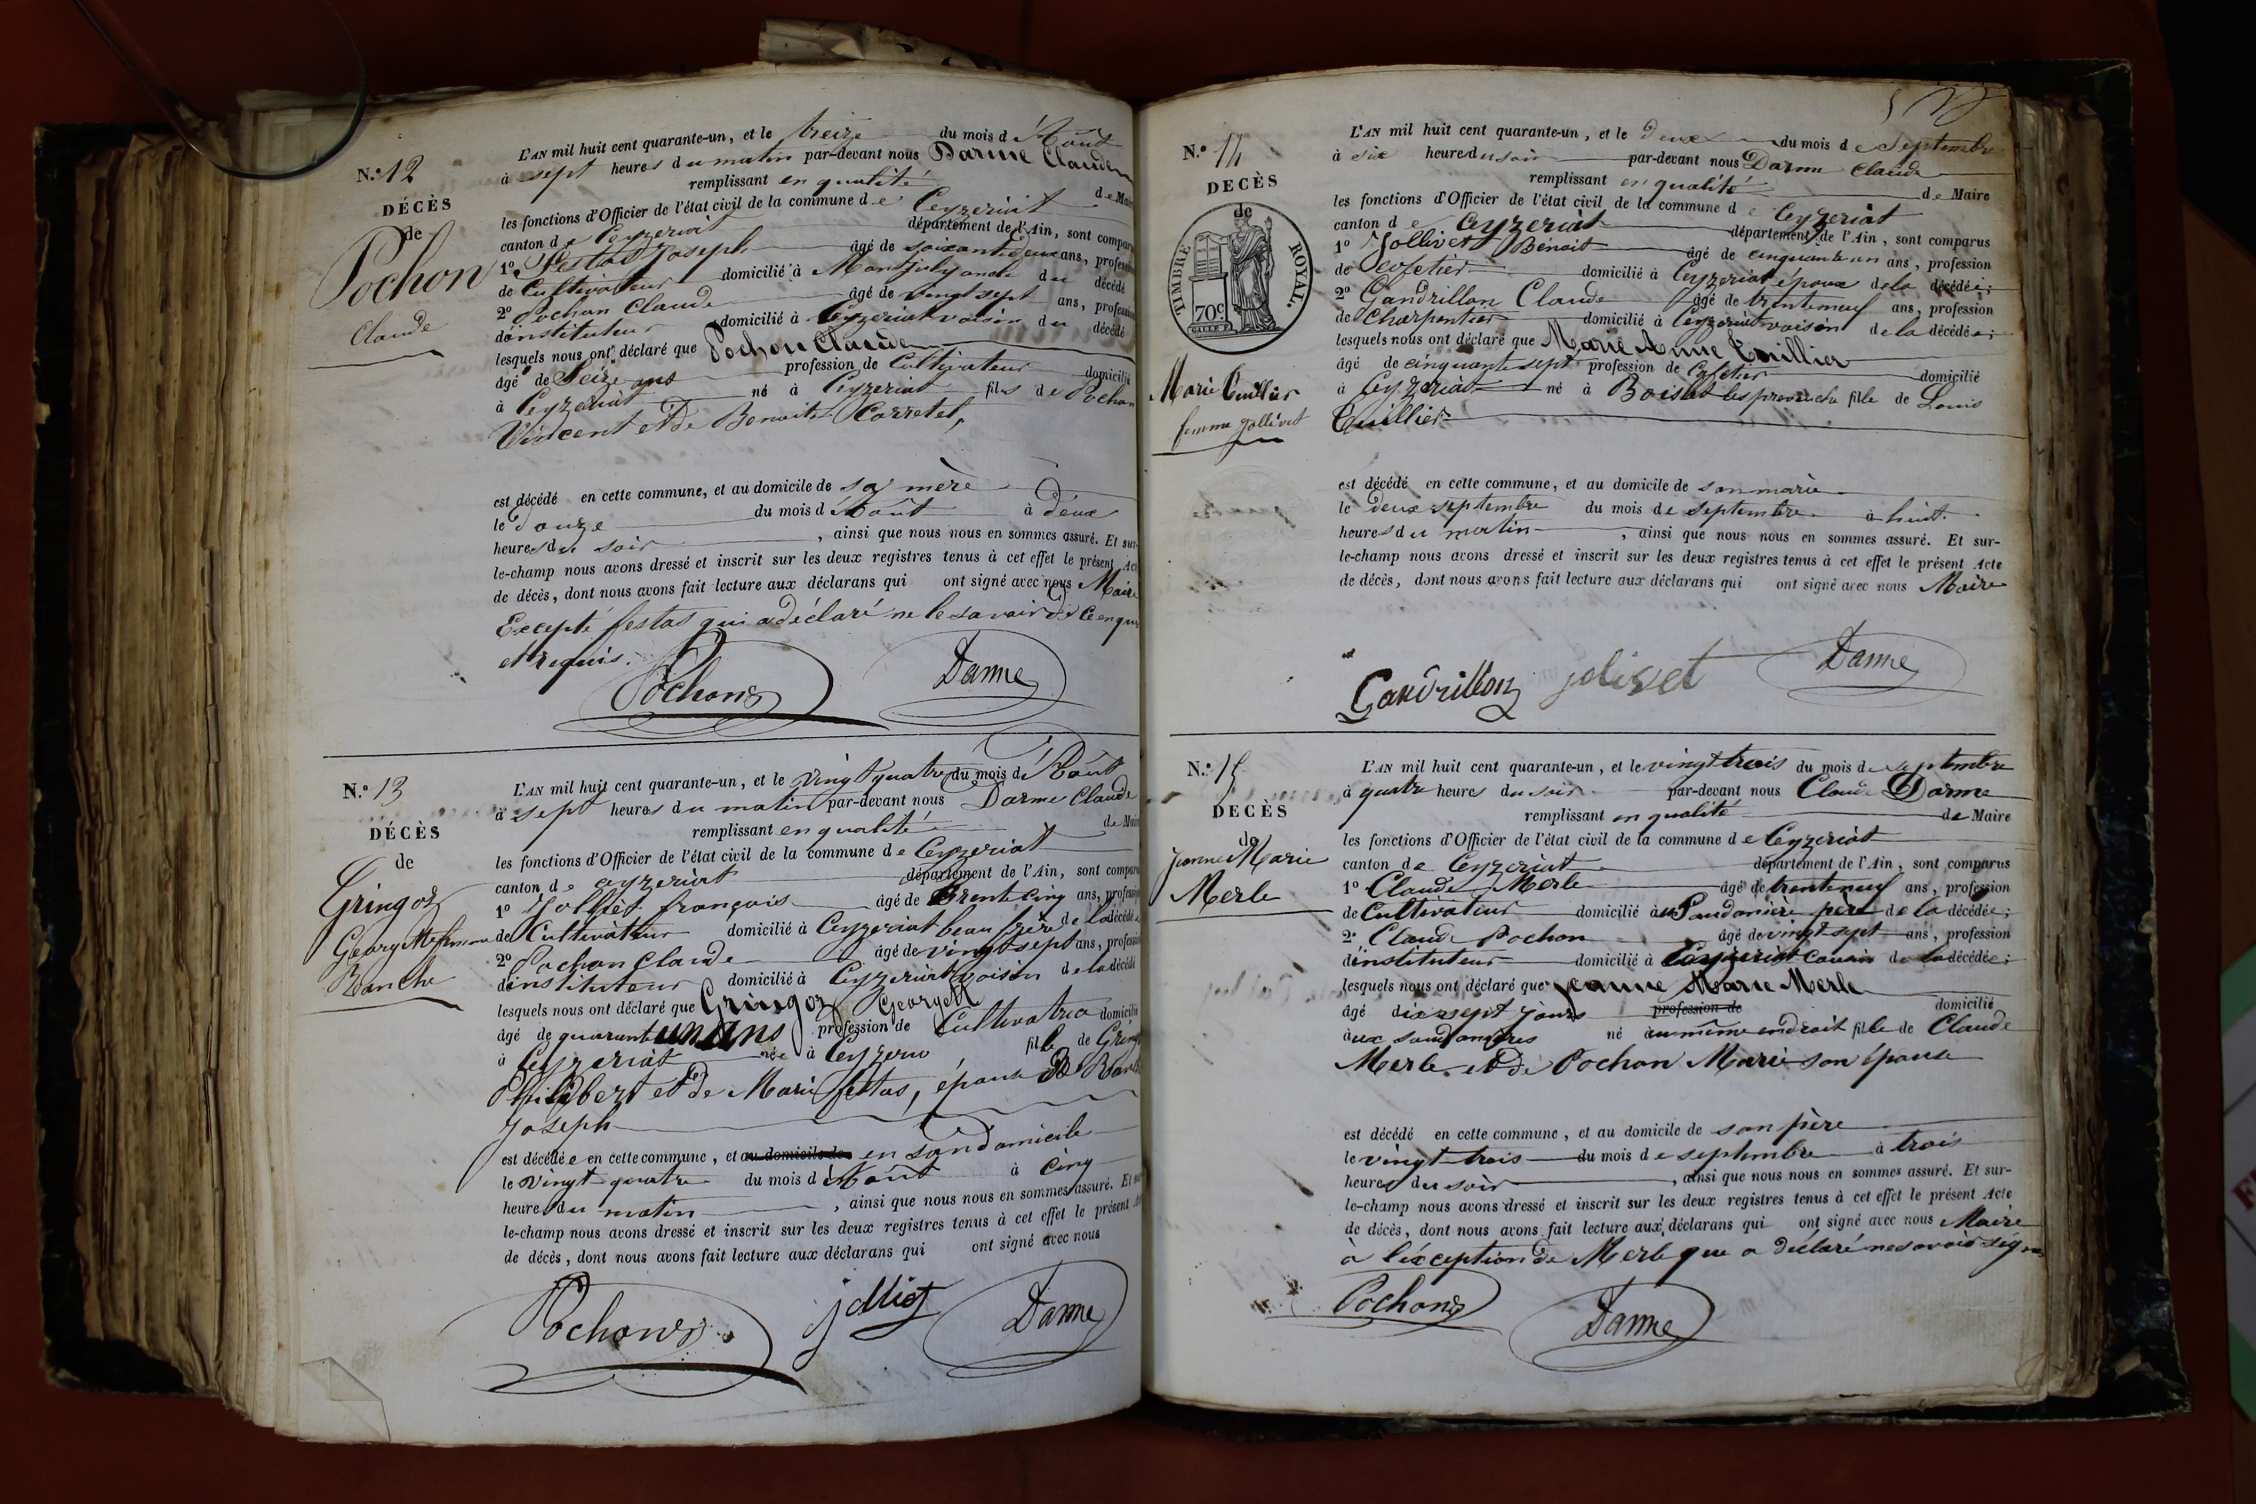 N.º 12
DÉCÈS
de
Pochon
Claude
L'AN mil huit cent quarante-un, et le treize du mois d'Août
à sept heures du matin par-devant nous Darme Claude
remplissant en qualité de Maire
les fonctions d'Officier de l'état civil de la commune de Ceyzeriat
canton de Ceyzeriat département de l'Ain, sont comparus
1º Festas Joseph âgé de soixante deux ans, profession
de Cultivateur domicilié à Montjuly oncle du décédé
2º Pochon Claude âgé de vingt sept ans, profession
d'instituteur domicilié à Ceyzeriat voisin du décédé
lesquels nous ont déclaré que Pochon Claude
âgé de Seize ans profession de Cultivateur domicilié
à Ceyzeriat né à Ceyzeriat fils de Pochon
Vincent et de Benoite Carretel,
est décédé en cette commune, et au domicile de sa mère
le douze du mois d'Août à deux
heures du soir, ainsi que nous nous en sommes assuré. Et sur-
le-champ nous avons dressé et inscrit sur les deux registres tenus à cet effet le présent Acte
de décès, dont nous avons fait lecture aux déclarans qui ont signé avec nous Maire
Excepté festas qui a déclaré ne le savoir de ce enquis
et requis.
Pochon Darme
N.º 13
DÉCÈS
de
Gringoz
Georgette femme
Ranche
L'AN mil huit cent quarante-un, et le vingt quatre du mois d'Août
à sept heures du matin par-devant nous Darme Claude
remplissant en qualité de Maire
les fonctions d'Officier de l'état civil de la commune de Ceyzeriat
canton de Ceyzeriat département de l'Ain, sont comparus
1º Jolliet françois âgé de trente cinq ans, profession
de Cultivateur domicilié à Ceyzeriat beau frère de la décédée
2º Pochon Claude âgé de vingt sept ans, profession
d'instituteur domicilié à Ceyzeriat voisin de la décédé
lesquels nous ont déclaré que Gringoz Georgette
âgé de quarante un ans profession de Cultivatrice domicilié
à Ceyzeriat née à Ceyzeria fille de Gringoz
Philibert et de Marie festas, épouse de
Joseph
est décédée en cette commune, et au domicile de en son domicile
le vingt quatre du mois d'Août à cinq
heures du matin, ainsi que nous nous en sommes assuré. Et sur-
le-champ nous avons dressé et inscrit sur les deux registres tenus à cet effet le présent
de décès, dont nous avons fait lecture aux déclarans qui ont signé avec nous
Pochon jolliet Darme
N.º 14
DECÈS
de
TIMBRE ROYAL.
70c
Marie Cuillier
femme Jollivet
L'AN mil huit cent quarante-un, et le deux du mois de Septembre
à six heures du soir par-devant nous Darme Claude
remplissant en qualité de Maire
les fonctions d'Officier de l'état civil de la commune de Ceyzeriat
canton de Ceyzeriat département de l'Ain, sont comparus
1º Jollivet Benoit âgé de cinquante un ans, profession
de Cafetier domicilié à Ceyzeriat époux de la décédée;
2º Gandrillon Claude âgé de trente neuf ans, profession
de Charpentier domicilié à Ceyzeriat voisin de la décédée;
lesquels nous ont déclaré que Marie Anne Cuillier
âgé de cinquante sept profession de Cafetier domicilié
à Ceyzeriat né à fille de Louis
Cuillier
est décédé en cette commune, et au domicile de son marie
le deux septembre du mois de septembre à huit
heures du matin, ainsi que nous nous en sommes assuré. Et sur-
le-champ nous avons dressé et inscrit sur les deux registres tenus à cet effet le présent Acte
de décès, dont nous avons fait lecture aux déclarans qui ont signé avec nous Maire
Gandrillon jolivet Darme
N.º 15
DECÈS
de
Jeanne Marie
Merle
L'AN mil huit cent quarante-un, et le vingt trois du mois de septembre
à quatre heures du soir par-devant nous Claude Darme
remplissant en qualité de Maire
les fonctions d'Officier de l'état civil de la commune de Ceyzeriat
canton de Ceyzeriat département de l'Ain, sont comparus
1º Claude Merle âgé de trente neuf ans, profession
de Cultivateur domicilié père de la décédée;
2º Claude Pochon âgé de vingt sept ans, profession
d'instituteur domicilié à Ceyzeriat Cousin de la décédée;
lesquels nous ont déclaré que Jeanne Marie Merle
âgé dix sept jours profession de domicilié
né au même endroit fille de Claude
Merle et de Pochon Marie son épouse
est décédé en cette commune, et au domicile de son père
le vingt trois du mois de septembre à trois
heures du soir, ainsi que nous nous en sommes assuré. Et sur-
le-champ nous avons dressé et inscrit sur les deux registres tenus à cet effet le présent Acte
de décès, dont nous avons fait lecture aux déclarans qui ont signé avec nous Maire
à l'éxception de Merle que a déclaré ne savoir signer
Pochon Darme